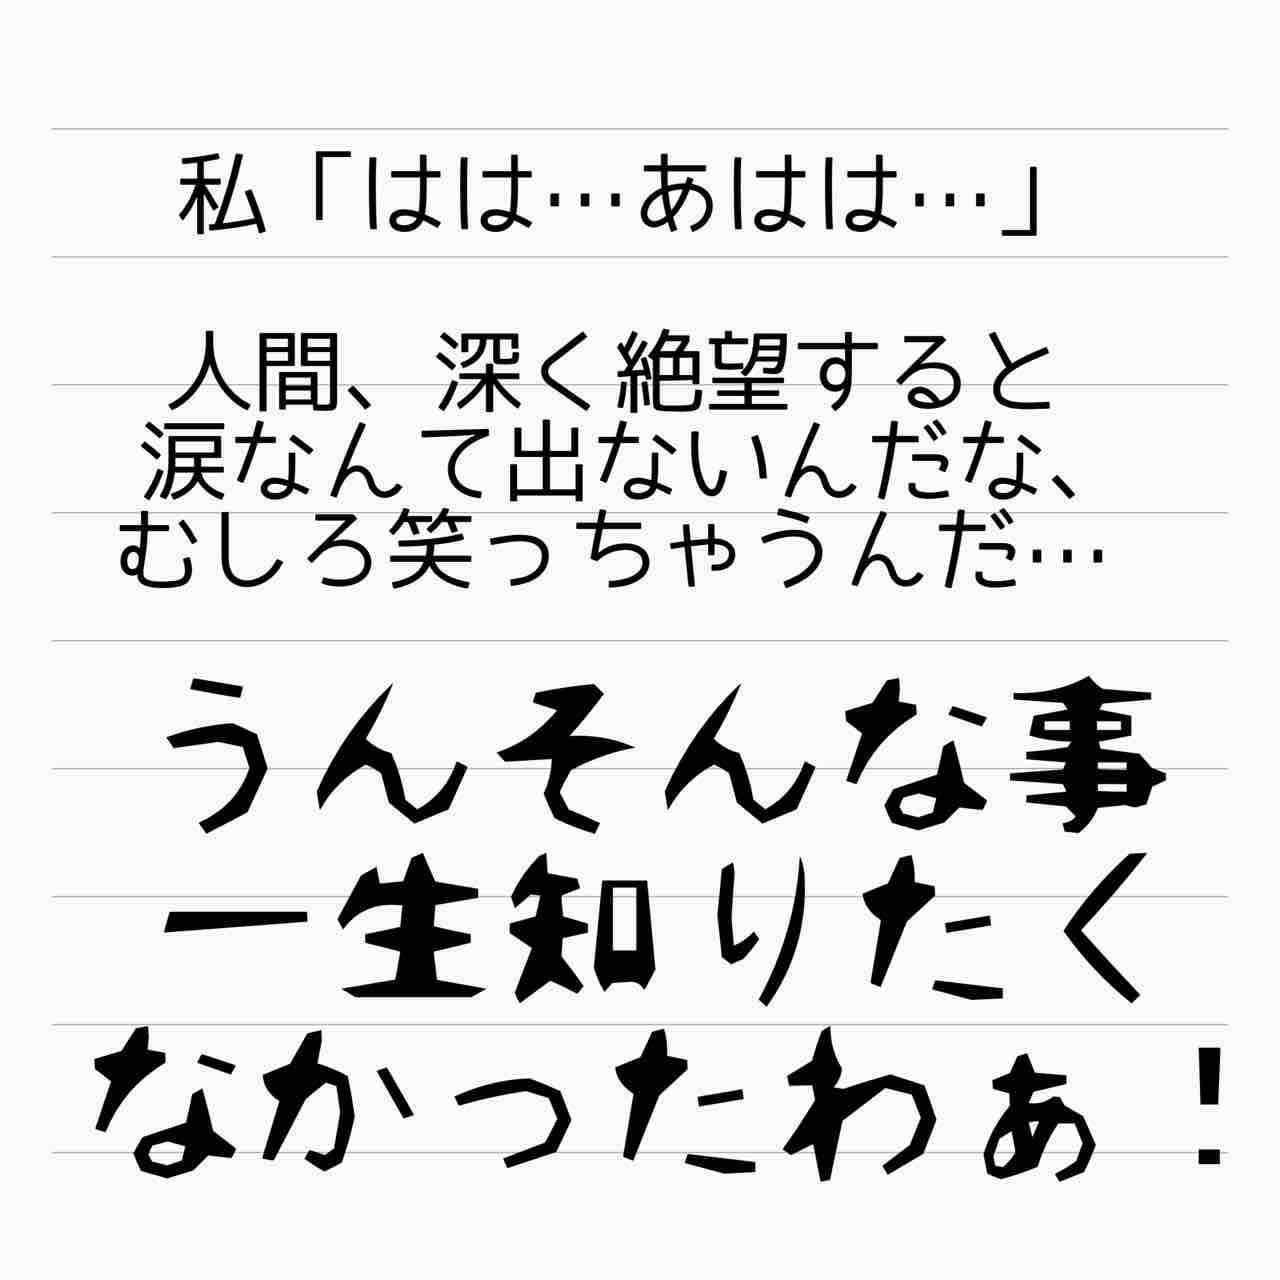 私「はは…あはは…」
人間、深く絶望すると
涙なんて出ないんだな、
むしろ笑っちゃうんだ…
うんそんな事
一生知りたく
なかったわぁ！